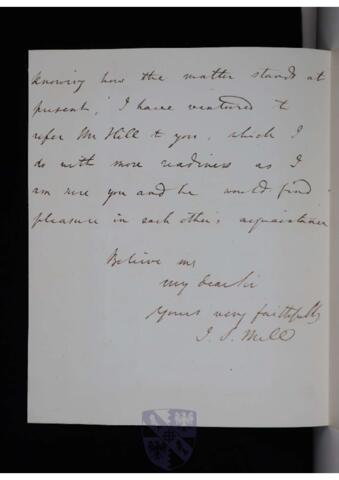 knowing how the matter stands at
present, I have ventured to
refer Mr Hill to you, which I
do with more readiness as I
am sure you and he would find
pleasure in each other's acquaintance
Believe me
my dear Sir
Yours very faithfully
J. S. Mill